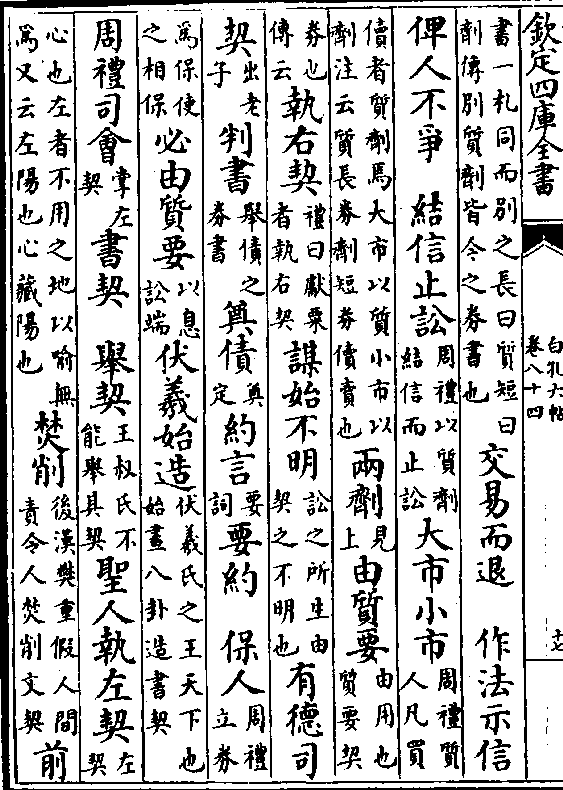 欽定四庫全書
白孔六帖
卷八十四
十七
書一札同而別之長曰質短曰劑傳別質劑皆今之券書也 交易而退 作法示信
俾人不爭 結信止訟 周禮以質劑結信而止訟 大市小市 周禮質人凡買
儥者質劑焉大市以質小市以劑注云質長券劑短券儥賣也 兩劑 見上 由質要 由用也質要契
券也傳云 執右契 禮曰獻粟者執右契 謀始不明 訟之所生由契之不明也 有德司
契 出老子 判書 舉債之券書 奠債 奠定 約言 要詞 要約 保人 周禮立券
爲保使之相保 必由質要 以息訟端 伏羲始造 伏羲氏之王天下也始畫八卦造書契
周禮司會 掌左契 書契 舉契 王叔氏不能舉其契 聖人執左契 左契
心也左者不用之地以喻無爲又云左陽也心藏陽也 焚削 後漢樊重假人間責令人焚削文契 前